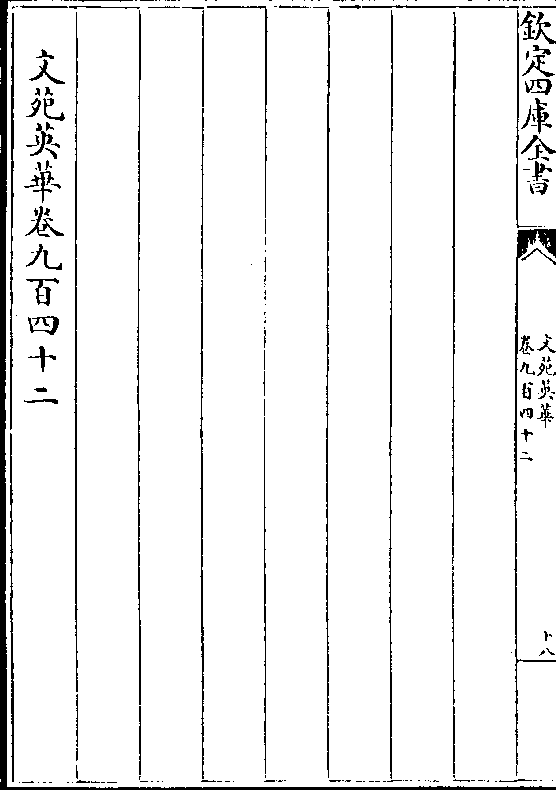 欽定四庫全書
文苑英華
卷九百四十二
十八
文苑英華卷九百四十二